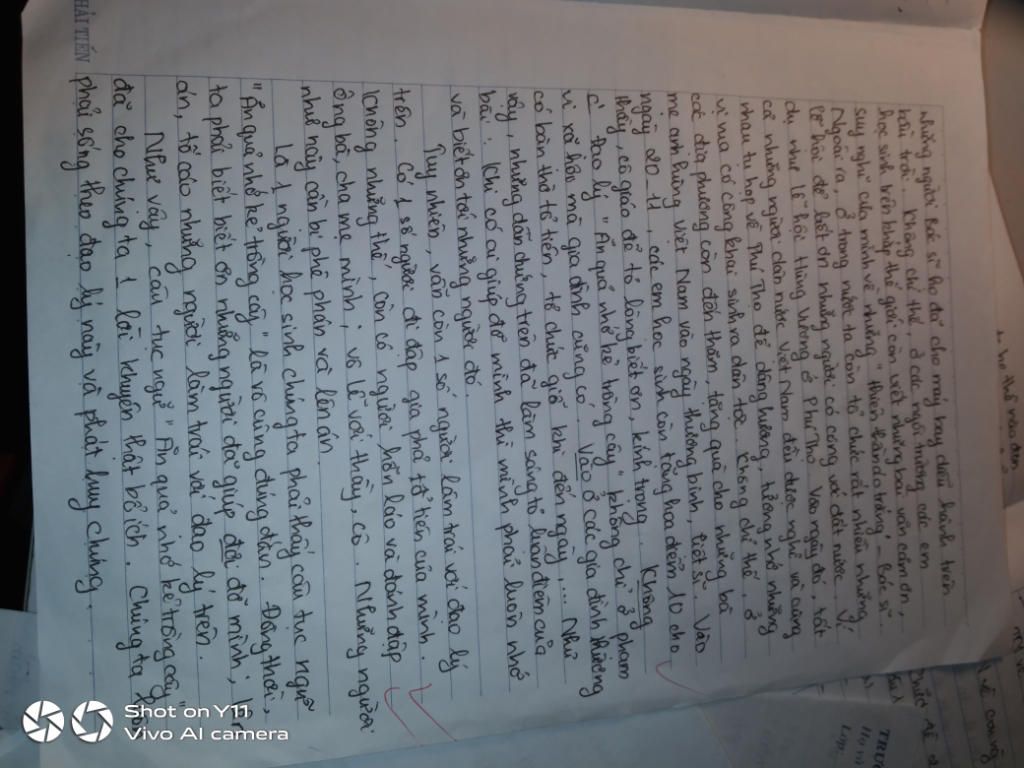 những người Bác sĩ họ đã cho máy bay diễu hành trên
bầu trời. Không chỉ thế, ở các ngôi trường các em
học sinh trên khắp thế giới còn viết những bài văn cảm ơn,
suy nghĩ của mình về những "thiên thần áo trắng" – Bác sĩ.
Ngoài ra, ở trong nước ta còn tổ chức rất nhiều những
lễ hội để biết ơn những người có công với đất nước. Ví
dụ như lễ hội Hùng Vương ở Phú Thọ. Vào ngày đó, tất
cả những người dân nước Việt Nam đều được nghỉ và cùng
nhau tụ họp về Phú Thọ để dâng hương, tưởng nhớ những
vị vua có công khai sinh ra dân tộc. Không chỉ thế, ở
các địa phương còn đến thăm, tặng quà cho những bà
mẹ anh hùng Việt Nam vào ngày thương binh, liệt sĩ. Vào
ngày 20-11, các em học sinh còn tặng hoa điểm 10 cho
thầy, cô giáo để tỏ lòng biết ơn, kính trọng... Không
chỉ đạo lý "Ăn quả nhớ kẻ trồng cây" không chỉ ở phạm
vi xã hội mà gia đình cũng có. Vào ở các gia đình thường
có bàn thờ tổ tiên, tổ chức giỗ khi đến ngày... Như
vậy, những dẫn chứng trên đã làm sáng tỏ luận điểm của
bài: Khi có ai giúp đỡ mình thì mình phải luôn nhớ
và biết ơn tới những người đó.
Tuy nhiên, vẫn còn 1 số người làm trái với đạo lý
trên. Có 1 số người đi đập gia phả tổ tiên của mình.
Không những thế, còn có người hỗn láo và đánh đập
ông bà, cha mẹ mình; vô lễ với thầy, cô. Những người
như này cần bị phê phán và lên án.
Là 1 người học sinh chúng ta phải thấy câu tục ngữ
"Ăn quả nhớ kẻ trồng cây" là vô cùng đúng đắn. Đồng thời,
ta phải biết biết ơn những người đã giúp đỡ mình; lên
án, tố cáo những người làm trái với đạo lý trên.
Như vậy, câu tục ngữ "Ăn quả nhớ kẻ trồng cây"
đã cho chúng ta 1 lời khuyên thật bổ ích. Chúng ta
phải sống theo đạo lý này và phát huy chúng.
HẢI TIẾN
Shot on Y11
Vivo AI camera